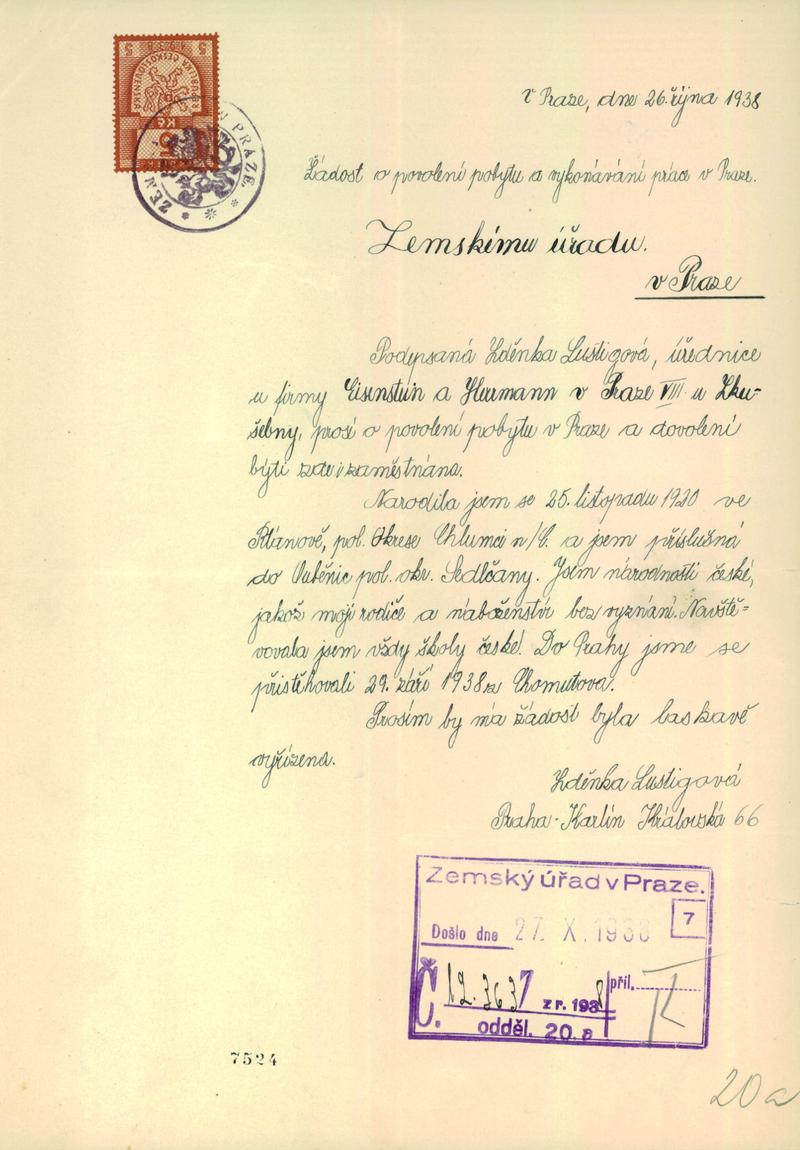 5 1938 5
REPUBLIKA ČESKOSLOVENSKÁ
Kč
ZEM N PRAZE
v Praze, dne 26. října 1938
Žádost o povolení pobytu a vykonávání práce v Praze.
Zemskému úřadu.
v Praze
Podepsaná Zděnka Lustigová, úřednice
u firmy Eisenstein a Herrmann v Praze VIII u Zku-
šebny, prosí o povolení pobytu v Praze a dovolení
býti zde i zaměstnána.
Narodila jsem se 25. listopadu 1920 ve
pol. okrese Chlumci n/C. a jsem příslušná
do pol. okr. Sedlčany. Jsem národnosti české,
jakož moji rodiče a náboženství bez vyznání. Navště-
vovala jsem vždy školy české. Do Prahy jsme se
přistěhovali 29. září 1938 z Chomutova.
Prosím by má žádost byla laskavě
vyřízena.
Zděnka Lustigová
Praha-Karlín Královská 66
Zemský úřad v Praze.
Došlo dne 27. X. 1938 7
Č. 12.3637 z r. 1938 příl.
odděl. 20.a
7524
20a